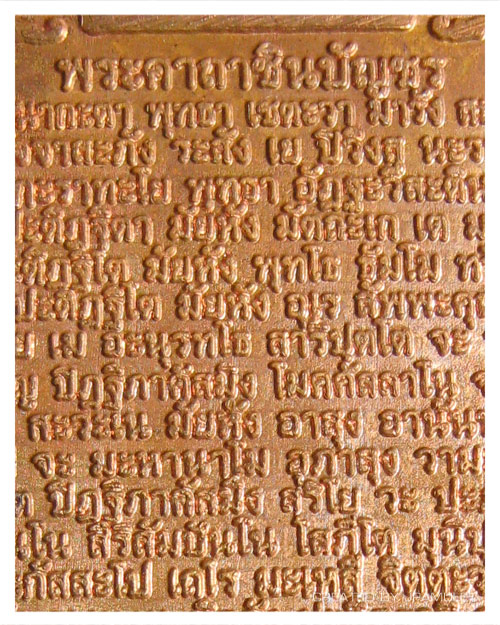 พระคาถาชินบัญชร
นากะตา พุทธา เชตะวา มารัง
ระสัง เย ปิวิงสุ นะรา
กะราทะโย พุทธา อัฏฐะวีสะติ
ปะติฏฐิตา มัยหัง มัตถะเก เต
ะติฏฐิโต มัยหัง พุทโธ ธัมโม
ปะติฏฐิโต มัยหัง อุเร สัพพะคุ
เม อะนุรุทโธ สารีปุตโต จะ
ปิฏฐิภาคัสมิง โมคคัลลาโน
สะวะเน มัยหัง อาสุง อานัน
จะ มะหานาโม อุภาสุง วาม
ปิฏฐิภาคัสมิง สุริโย วะ ปะ
นโน สิริสัมปันโน โสภิโต มุนิ
ะกัสสะโป เถโร มะเหสี จิตตะว
CREATED BY